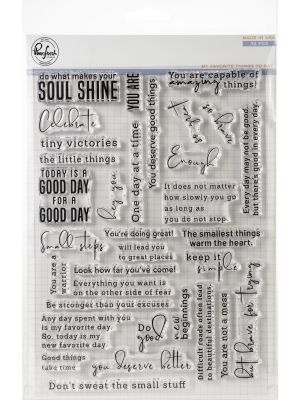 Pinkfresh
MADE IN USA
MY FAVORITE THINGS TO SAY
do what makes your
SOUL SHINE
YOU ARE
You deserve good things
You are capable of
amazing
things!
Celebrate
tiny victories
the little things
One day at a time
so brave
Enough
Every day may not be good,
but there's good in every day.
TODAY IS A
GOOD DAY
FOR A
GOOD DAY
hey you
It does not matter
how slowly you go
as long as
you do not stop.
Small steps
You're doing great!
will lead you
to great places
The smallest things
warm the heart.
keep it
simple
You are a
warrior
Look how far you've come!
Everything you want is
on the other side of fear
Be stronger than your excuses
Any day spent with you
is my favorite day.
So, today is my
new favorite day.
Do
good
new
beginnings
Difficult roads often lead
to beautiful destinations.
You are not a mess
but brave for trying
Good things
take time
you deserve better
Don't sweat the small stuff